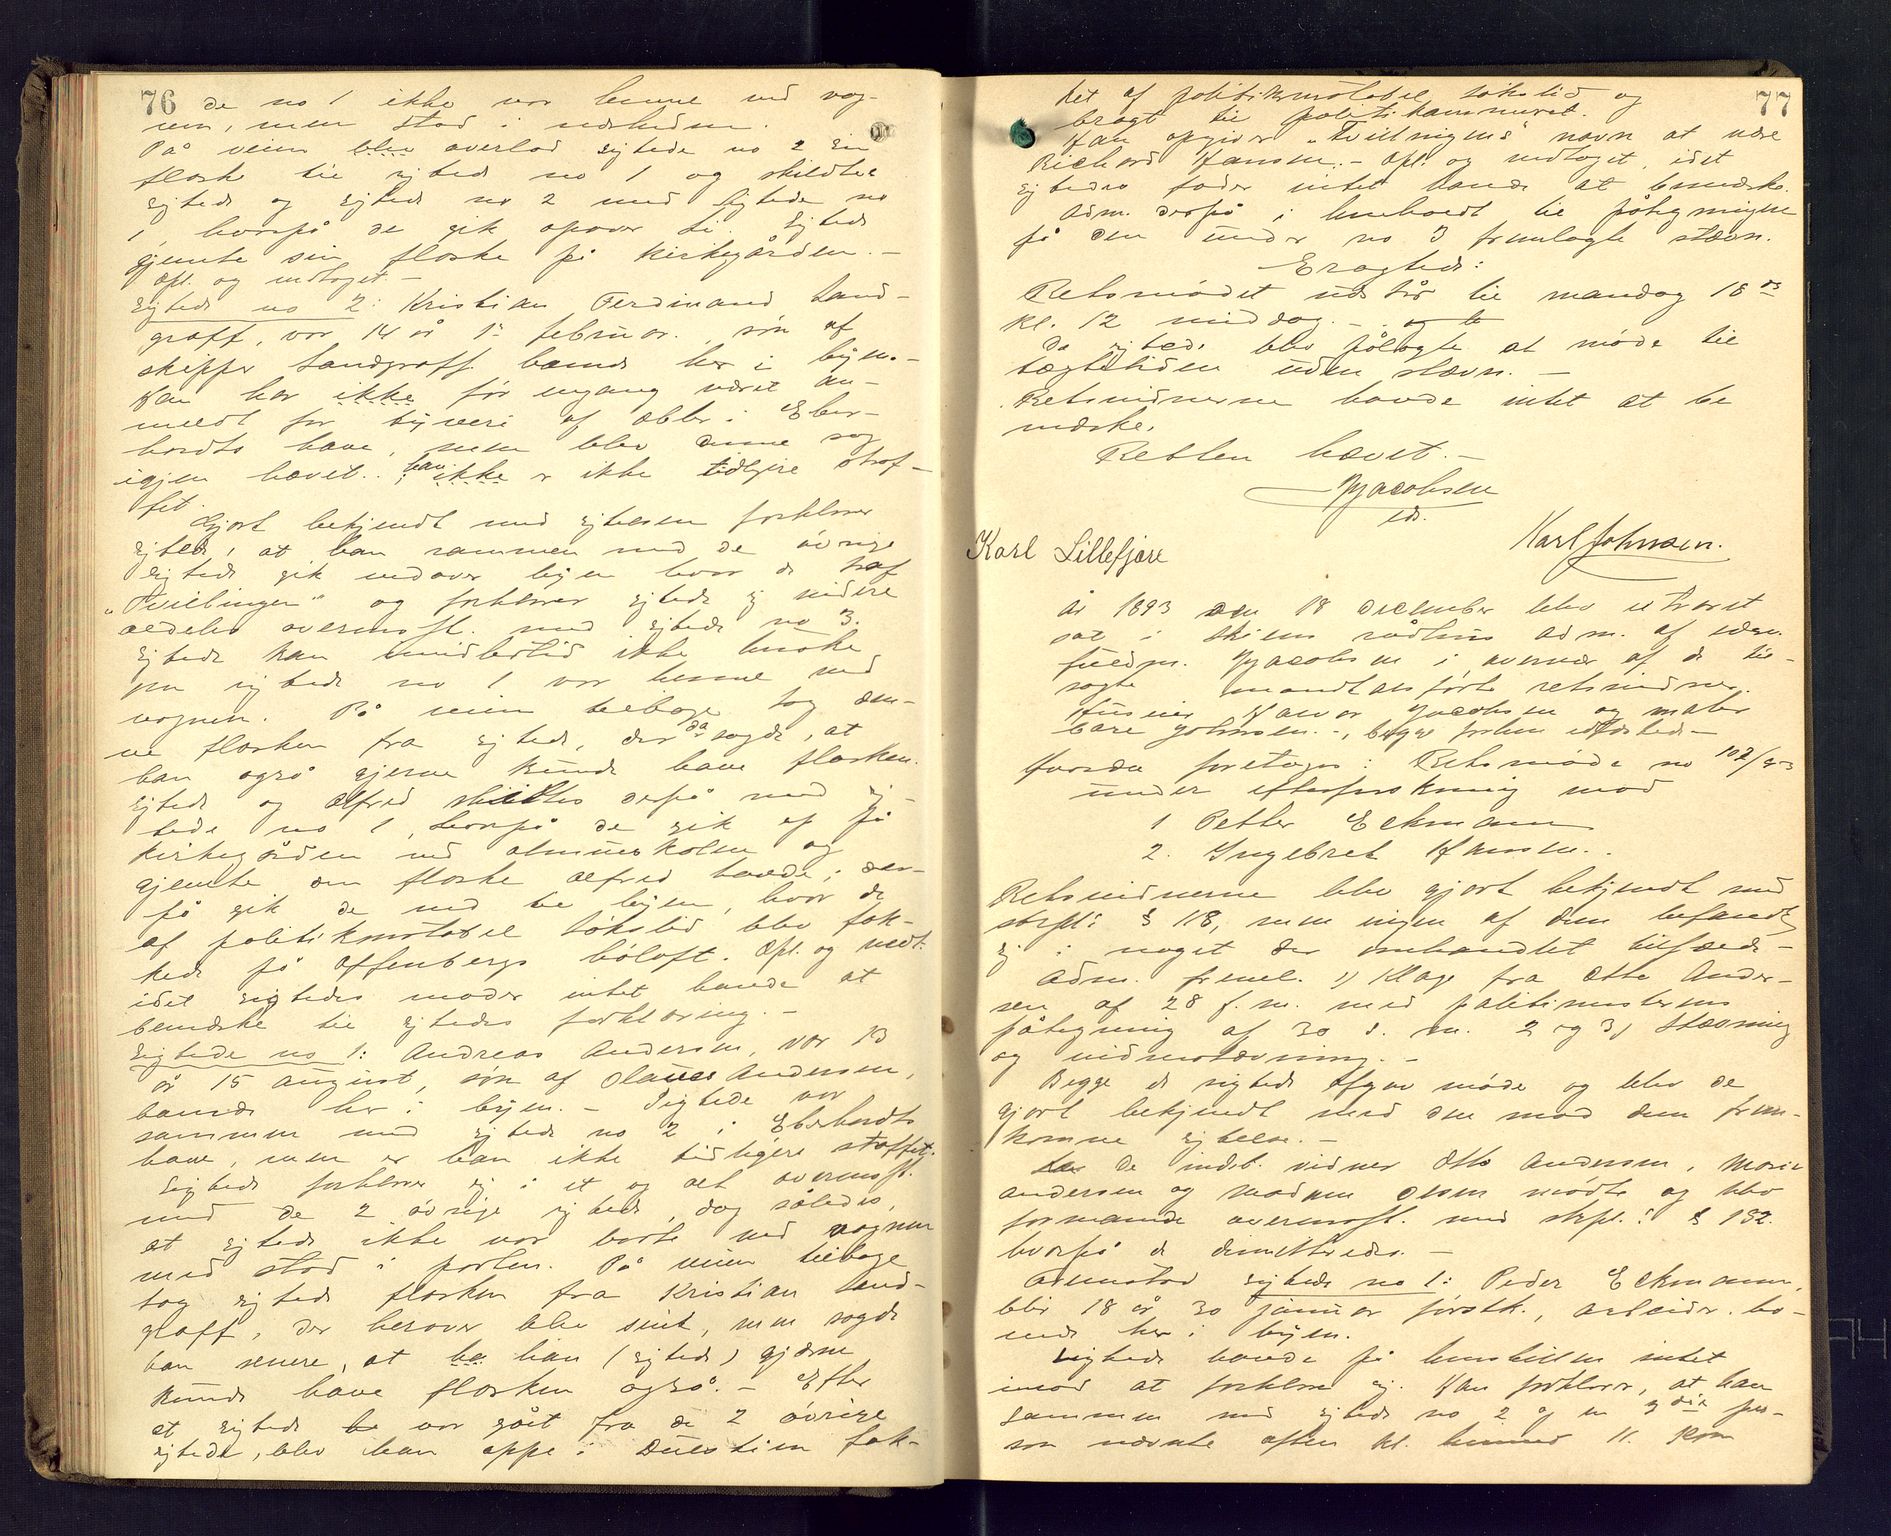 76 de no 1 ikke var henne ved vog-
nen, men stod i nærheden.
På veien blev overlod sigtede no 2 sin
flaske til sigtede no 1 og skildtes
sigtede og sigtede no 2 med sigtede no
1, hvorpå de gik opover til. Sigtede
gjemte sin flaske på kirkegården. –
Opl. og vedtaget. –
Sigtede no 2: Kristian Ferdinand Land-
graff, var 14 år 1ste februar, søn af
skipper Landgraff boende her i byen. –
Han har ikke før engang været an-
meldt for tyveri af æbler i Eber-
hardts have, men blev denne sag
igjen hævet. han ikke er ikke tidligere straf-
fet.
Gjort bekjendt med sigtelsen forklarer
sigtede, at han sammen med de øvrige
sigtede gik nedover byen hvor de traf
"Tvillingen" og forklarer sigtede sig videre
aldeles overensst. med sigtede no 3.
Sigtede kan imidlertid ikke huske
om sigtede no 1 var henne ved
vognen. På veien tilbage tog den-
ne flasken fra sigtede, der da sagde, at
han også gjerne kunde have flasken.
Sigtede og Alfred skildtes derpå med sig-
tede no 1, hvorpå de gik op på
kirkegården ved almueskolen og
gjemte den flaske Alfred havde; der-
på gik de ned til byen, hvor de
af politikonstabel Løkslid blev pak-
kede på Offenbergs høloft. Opl. og vedt.
idet sigtedes moder intet havde at
bemærke til sigtedes forklaring. –
Sigtede no 1: Andreas Andersen, var 13
år 15 august, søn af Olaues Andersen,
boende her i byen. – Sigtede var
sammen med sigtede no 2 i Eberhardts
have, men er han ikke tidligere straffet.
Sigtede forklarer sig i et og alt overensst.
med de 2 øvrige sigtede, dog således,
at sigtede ikke var borte ved vognen
med stod i porten. På veien tilbage
tog sigtede flasken fra Kristian Land-
graff, der herover blev sint, men sagde
han senere, at ha han (sigtede) gjærne
kunde have flasken også. – Efter
at sigtede be var gået fra de 2 øvrige
sigtede, blev han oppe i Duestien pak-
77
ket af politikonstabel Løkslid og
bragt til politikammeret.
Han opgiver "Tvillingens" navn at være
Richard Hansen. – Opl. og vedtaget, idet
sigtedes fader intet havde at bemærke.
Adm. derpå i henhold til påtegningen
på den under no 3 fremlagte stævn.
Eragtede:
Retsmødet udstår til mandag 18 ds
kl. 12 middag. – og ble
De sigtede blev pålagte at møde til
tægtetiden uden stævn. –
Retsvidnerne havde intet at be
mærke.
Retten hævet. –
Jacobsen
cst.
Karl Lillefjære
Karl Johnsen.
År 1893 den 18 december blev extraret
sat i Skiens rådhus adm. af edsv.
fuldm. Jacobsen i overvær af de til-
sagte mandtalsførte retsvidner
Huseier Halvor Jacobsen og maler
Lars Johnsen. –, begge forhen edfæstede –
Hvorda foretoges: Retsmøde no 102/93
under efterforskning mod
1 Petter Eckmann
2. Ingebret Hansen. .
Retsvidnerne blev gjort bekjendt med
strpl: § 118, men ingen af dem befandt
sig i noget der omhandlet tilfælde –
Adm. freml. 1) Klage fra Otto Ander-
sen af 28 f.m. med politimesterens
påtegning af 30 s. m. 2 og 3) Stævning
og vidnestævning. –
Begge de sigtede afgav møde og blev de
gjort bekjendt med den mod dem frem-
komne sigtelse. –
De indst. vidner Otto Andersen, Marie
Andersen og Madam Olsen mødte og blev
formanede overensst. med strpl.: § 182.
hvorpå de dimitteredes. –
Fremstod sigtede no 1: Peder Eckmann,
blir 18 år 30 januar førstk., arbeider. bo-
ende her i byen.
Sigtede havde på henstillen intet
imod at forklare sig. Han forklarer, at han
sammen med sigtede no 2 og en 3die per-
son nævnte aften kl. henved 11. kom